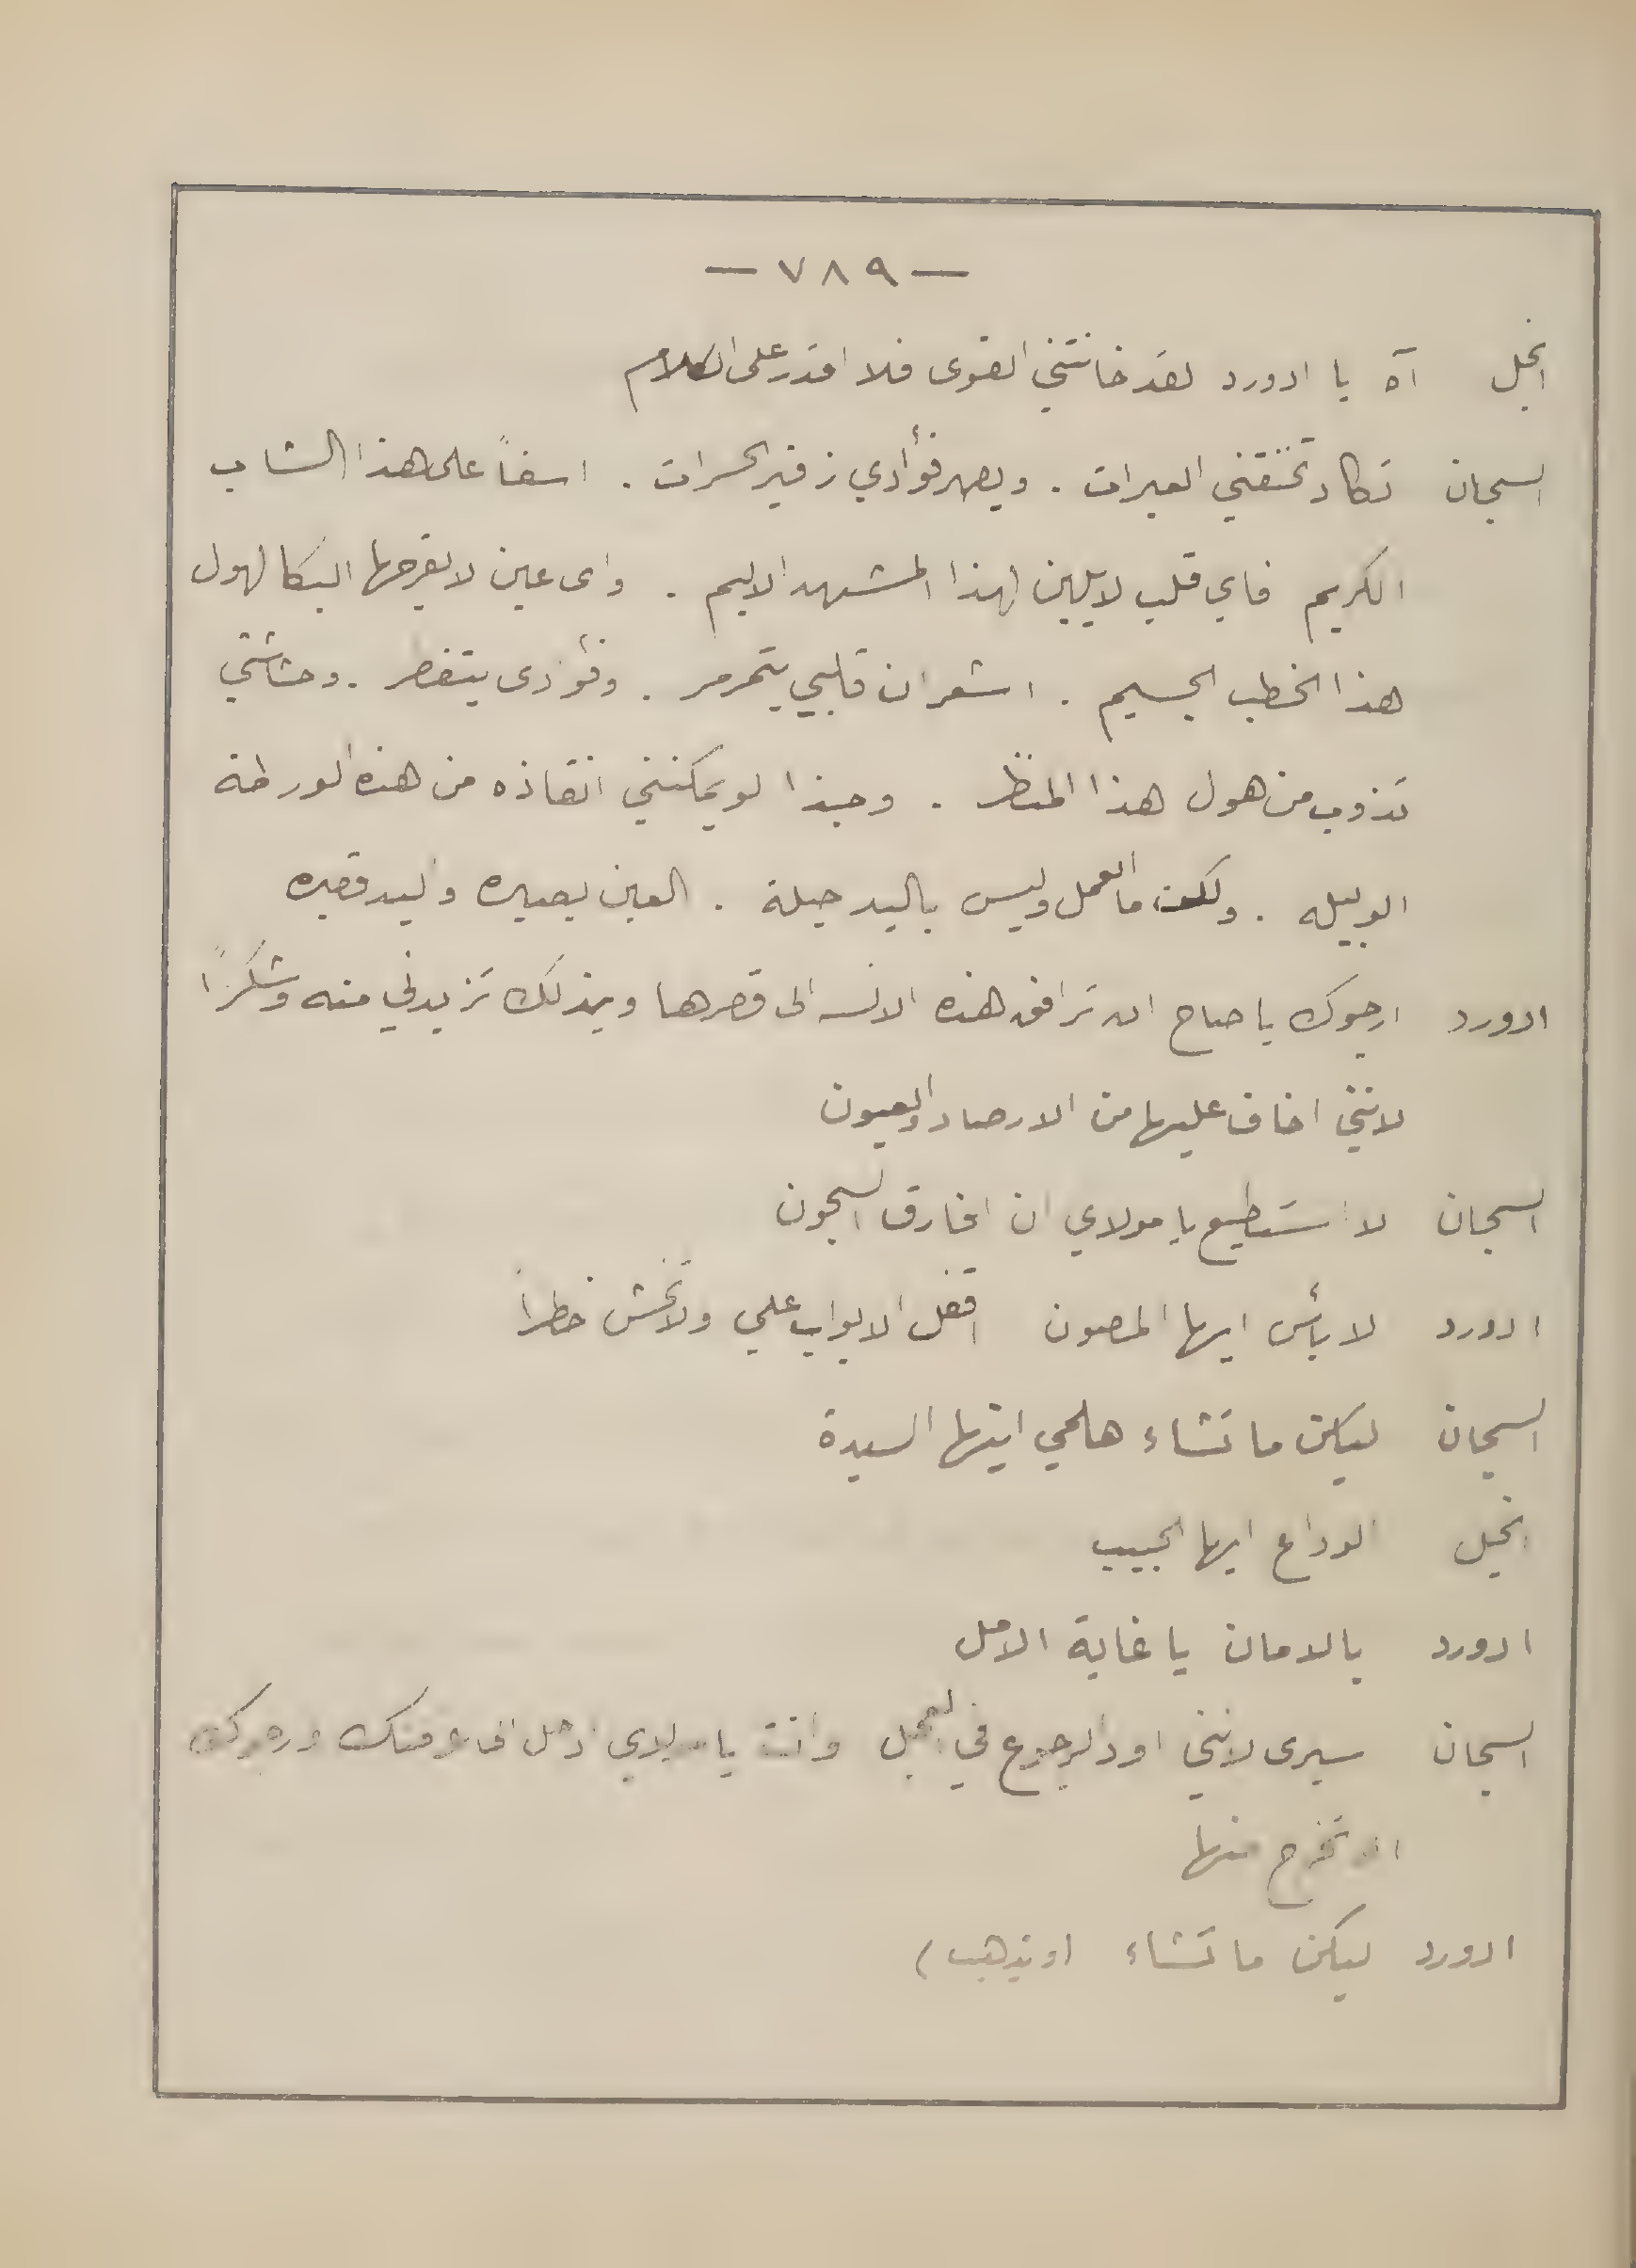 — ٧٨٩ —
انجل آه يا ادورد لقد خانتني القوى فلا اقدر على الكلام
السجان تكاد تخنقني العبرات . ويصهر فؤأدي زفير الحسرات . اسفاً على هذا الشاب
الكريم فاي قلب لايلين لهذا المشهد الاليم . واى عين لا يقرحها البكا لهول
هذا الخطب الجسيم . اشعر ان قلبي يتمرمر . وفؤادى يتفطر . وحشاشتي
تذوب من هول هذا المنظر . وحبذا لو يمكنني انقاذه من هذه الورطة
الوبيله . ولكن ما العمل وليس باليد حيلة . العين بصيره وليد قصيره
ادورد ارجوك يا صاح ان ترافق هذه الانسه الى قصرها وبذلك تزيدني منه وشكرًا
لانني اخاف عليها من الارصاد والعيون
السجان لا استطيع يا مولاي ان افارق السجون
ادورد لا بأس ايها المصون اقفل الابواب علي ولا تخش خطراً
السجان ليكن ما تشاء هلمي ايتها السيدة
انجيل الوداع ايها الحبيب
ادورد بالامان يا غاية الامل
السجان سيرى لانني اود الرجوع في العجل وانت يا سيدي ادخل الى غرفتك ورجوك
ان تخرج منها
ادورد ليكن ما تشاء ( ويذهب )